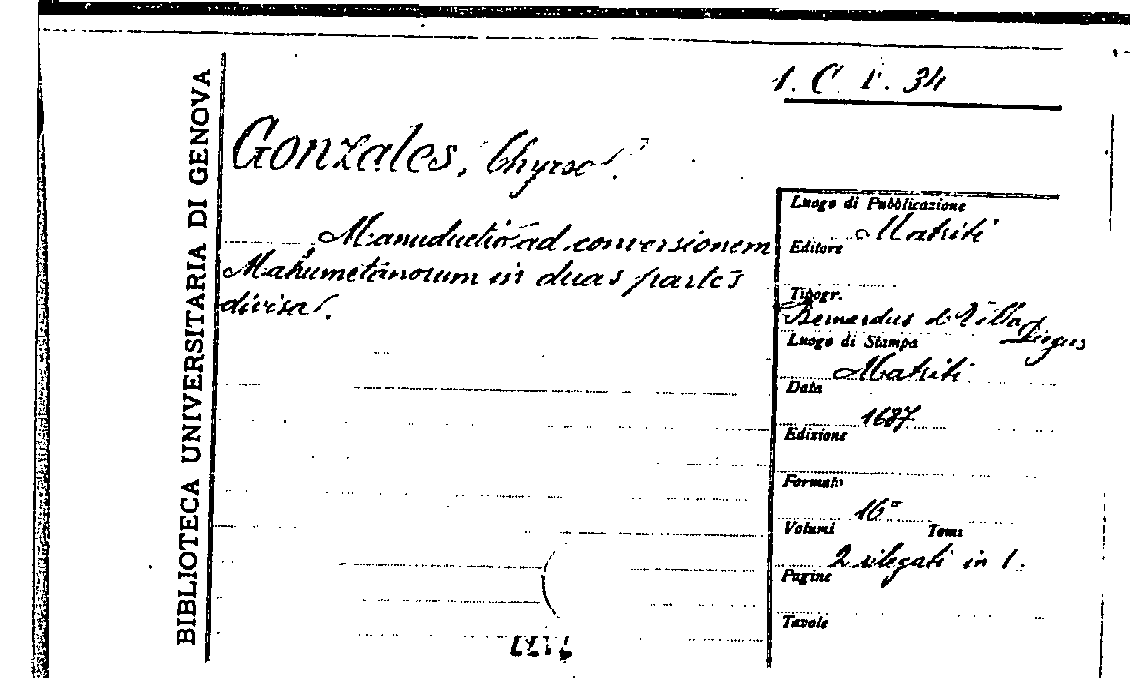 BIBLIOTECA UNIVERSITARIA DI GENOVA
1. C. I. 34
Gonzales, Thyrso.
Manuductio ad conversionem
Mahumetanorum in duas partes
divisa.
Luogo di Pubblicazione
Matriti
Editore
Tipogr.
Bernardus de Villa Diegus
Luogo di Stampa
Matriti
Data
1687
Edizione
Formato
16º
Volumi Tomi
2 rilegati in 1.
Pagine
Tavole